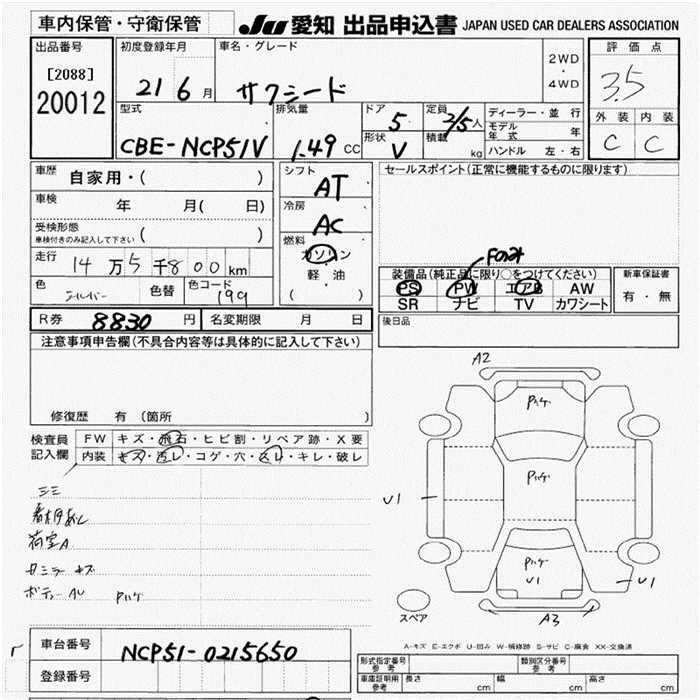 車内保管・守衛保管 JU 愛知 出品申込書 JAPAN USED CAR DEALERS ASSOCIATION
出品番号 初度登録年月 車名・グレード 2WD・4WD 評価点
[2088] 21 6月 サクシード 3.5
20012
型式 排気量 ドア 5 定員 2/5人 ディーラー・並行 外装 内装
CBE-NCP51V 1.49 CC 形状 V 積載 kg モデル年式 年 C C
ハンドル 左・右
車歴 自家用・( ) シフト AT セールスポイント(正常に機能するものに限ります)
車検 年 月( 日) 冷房 AC
受検形態 ( )
車検付きのみ記入して下さい
燃料 ガソリン
走行 14万5千800km 軽・油
( )
色 シルバー 色替 色コード 199
装備品(純正品に限り○をつけてください) 新車保証書
PS PW エアB AW 有・無
SR ナビ TV カワシート
R券 8830円 名変期限 月 日 後日品
注意事項申告欄(不具合内容等は具体的に記入して下さい)
修復歴 有(箇所 )
A2
Pハゲ
検査員記入欄 FW キズ・飛石・ヒビ割・リペア跡・X要
内装 キズ・汚レ・コゲ・穴・スレ・キレ・破レ
Pハゲ
U1
荷室A
キズ
ボディーAU Pハゲ
Pハゲ
U1
U1
スペア
A3
A-キズ E-エクボ U-凹み W-補修跡 S-サビ C-腐食 XX-交換済
車台番号 NCP51-0215650
登録番号
型式指定番号 参考 類別区分番号 参考
車庫証明用 参考 長さ cm 幅 cm 高さ cm